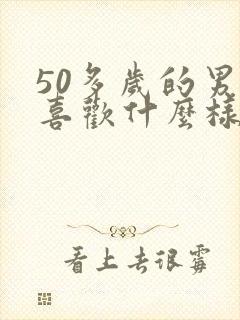 50多歲的男
喜歡什麼樣
看上去很霉